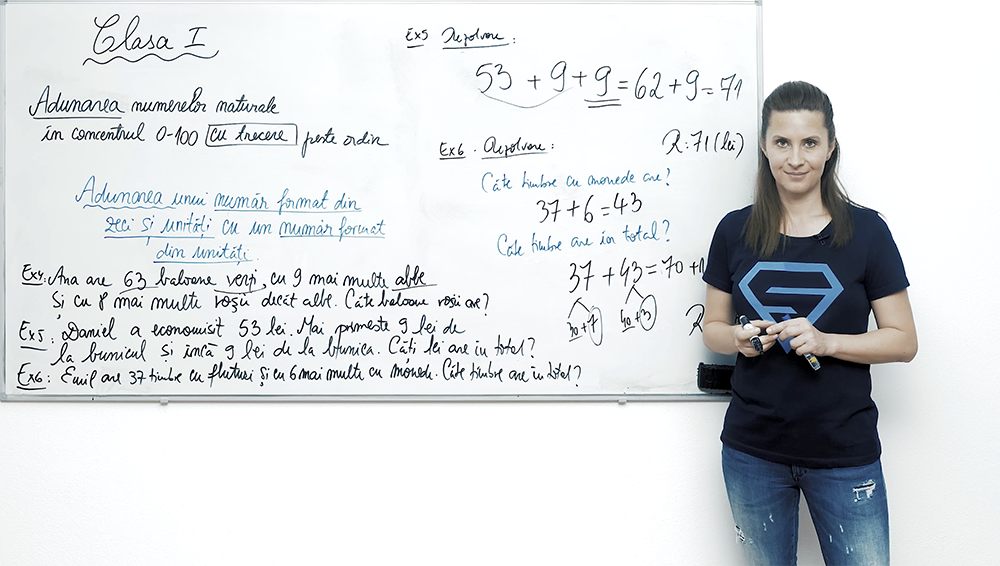 Clasa I
Adunarea numerelor naturale
în concentrul 0-100 cu trecere peste ordin
Adunarea unui număr format din
zeci și unități cu un număr format
din unități.
Ex4: Ana are 63 baloane verzi, cu 9 mai multe albe
și cu 8 mai multe roșii decât albe. Câte baloane roșii are?
Ex5: Daniel a economisit 53 lei. Mai primește 9 lei de
la bunicul și încă 9 lei de la bunica. Câți lei are în total?
Ex6: Emil are 37 timbre cu fluturi și cu 6 mai multe cu monede. Câte timbre are în total?
Ex5 Rezolvare:
53 + 9 + 9 = 62 + 9 = 71
R: 71 (lei)
Ex6. Rezolvare:
Câte timbre cu monede are?
37 + 6 = 43
Câte timbre are în total?
37 + 43 = 70 +
30 + 7 40 + 3
R